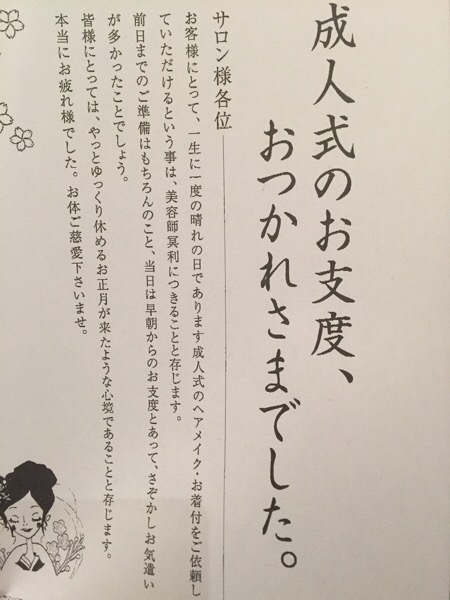 成人式のお支度、
おつかれさまでした。
サロン様各位
お客様にとって、一生に一度の晴れの日であります成人式のヘアメイク・お着付をご依頼し
ていただけるという事は、美容師冥利につきることと存じます。
前日までのご準備はもちろんのこと、当日は早朝からのお支度とあって、さぞかしお気遣い
が多かったことでしょう。
皆様にとっては、やっとゆっくり休めるお正月が来たような心境であることと存じます。
本当にお疲れ様でした。お体ご慈愛下さいませ。